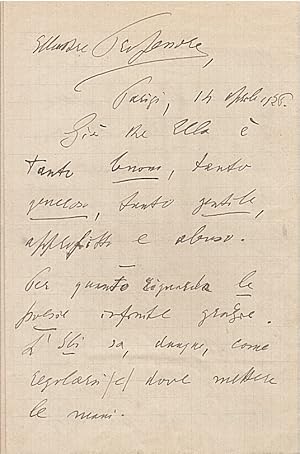 Illustre Professore,
Parigi, 14 aprile 926.
Già che Ella è
tanto buono, tanto
generoso, tanto gentile,
approfitto e abuso.
Per quanto riguarda le
poesie infinite grazie.
Ella sa, dunque, come
regolarsi e dove mettere
le mani.